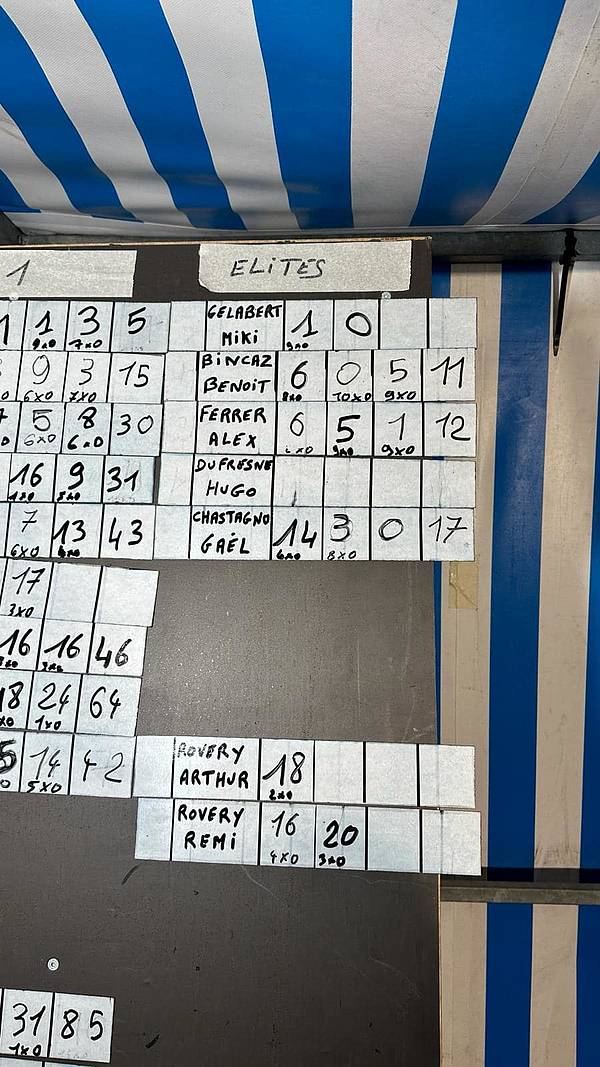 1 ELITES
1 3 5 GELABERT MIKI 1 0
9x0 7x0 9x0
9 3 15 BINCAZ BENOIT 6 0 5 11
6x0 7x0 8x0 10x0 9x0
5 8 30 FERRER ALEX 6 5 1 12
6x0 6x0 9x0 9x0
16 9 31 DUFRESNE HUGO
7 13 43 CHASTAGNO GAËL 14 3 0 17
6x0 6x0 8x0
17
3x0
16 16 46
18 24 64
1x0
14 42 ROVERY ARTHUR 18
5x0 2x0
ROVERY REMI 16 20
4x0 3x0
31 85
1x0